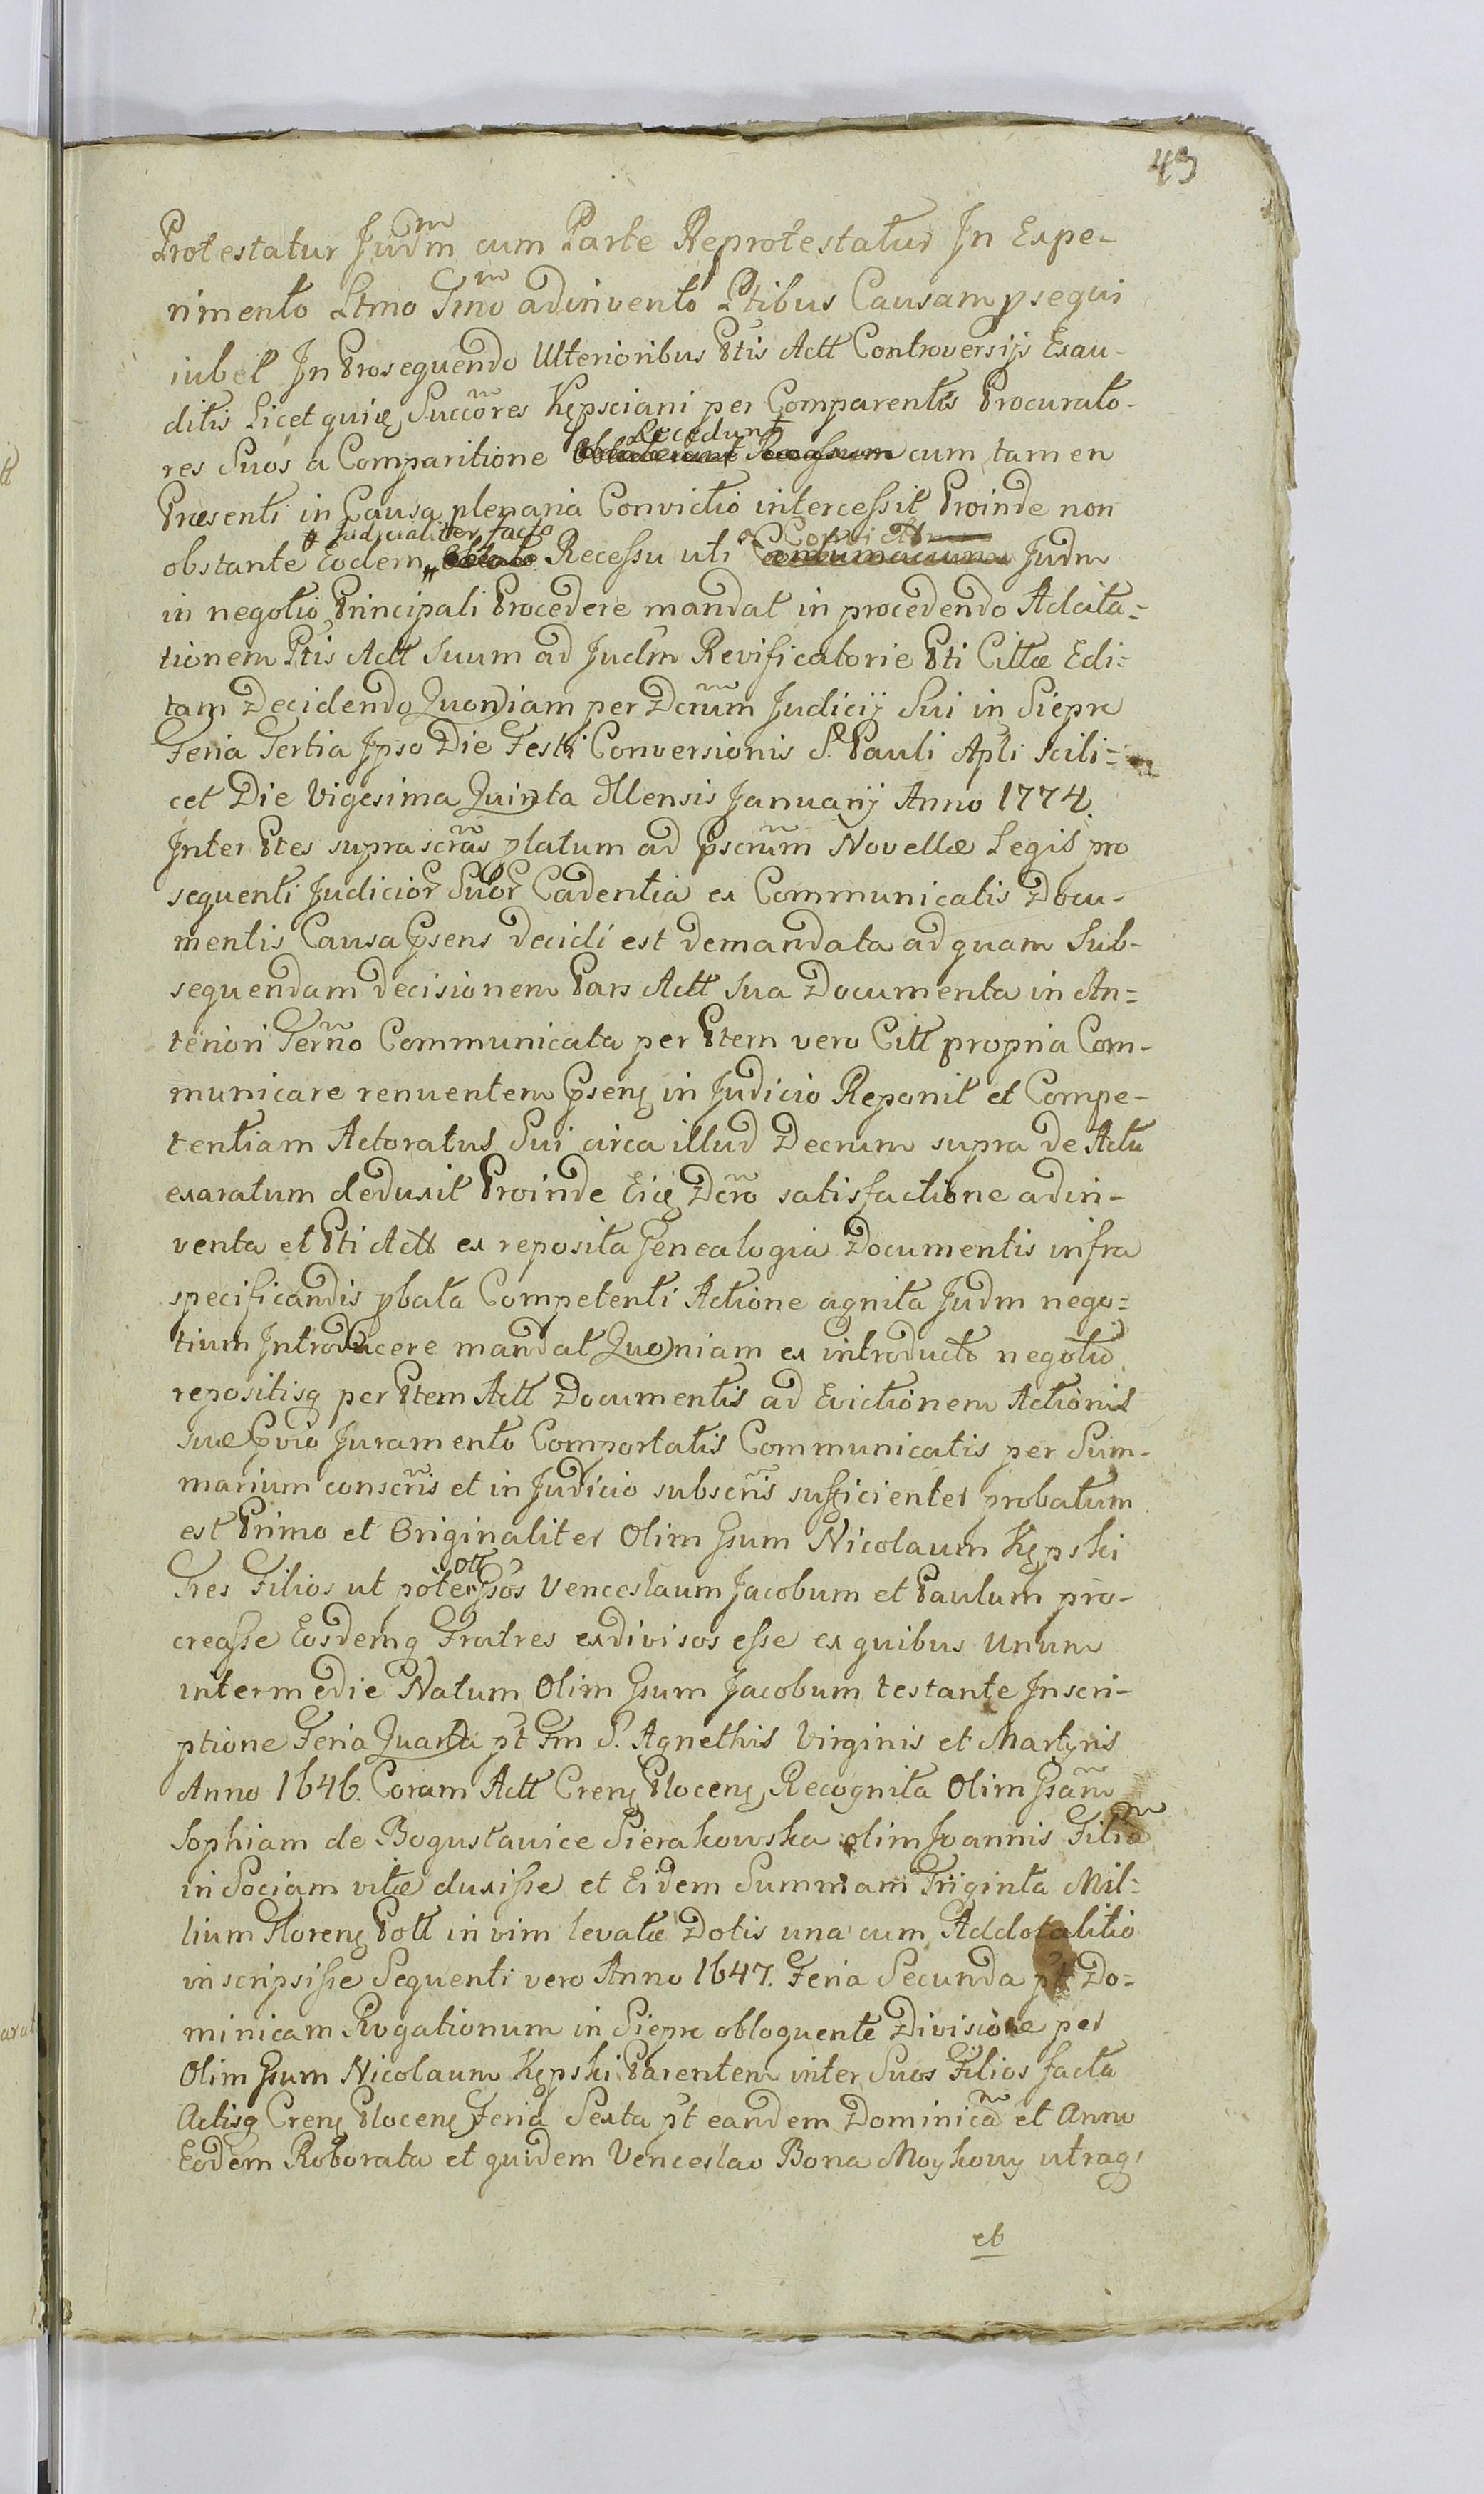 43
Protestatur Judm cum Parte Reprotestatur In Expe-
rimento Ltmo Tmo adinvento Ptibus Causam psequi
iubet In Prosequendo Ulterioribus Ptis Actt Controversijs Exau-
ditis Licet quię Succores Kępsciani per Comparentes Procurato-
Recedunt
res Suos a Comparitione cum tamen
Præsenti in Causa plenaria Convictio intercessit Proinde non
# Judicialiter facto Convict
obstante Eodem oblato Recessu uti Contumacium Judm
in negotio Principali Procedere mandat in procedendo Adcita=
tionem Ptis Actt Suum ad Judm Revificatorie Pti Cittæ Edi=
tam Decidendo Quoniam per Dcrum Judicij Sui in Siepre
Feria Tertia Ipso Die Festi Conversionis S. Pauli Apli scili=
cet Die Vigesima Quinta Mensis Januarij Anno 1774
Inter Ptes suprascras platum ad Pscrum Novellæ Legis pro
sequenti Judicior Suor Cadentia ex Communicatis Docu-
mentis Causa Psens decidi est demandata ad quam Sub-
sequendam decisionem Pars Actt sua Documenta in An=
teriori Terno Communicata per Ptem vero Citt propria Com-
municare renuentem Pseng in Judicio Reponit et Compe-
tentiam Actoratus Sui circa illud Decrum supra de Actu
exaratum deduxit Proinde Eię Dcro satisfactione adin-
venta et Pti Actt ex reposita Genealogia Documentis infra
specificandis pbata Competenti Actione agnita Judm nego=
tium Introducere mandat Quoniam ex introducto negotio
repositisq per Ptem Actt Documentis ad Evictionem Actionis
suæ Pvio Juramento Comportatis Communicatis per Sum-
marium conscris et in Judicio subscris sufficienter probatum
est Primo et Originaliter Olim Gsum Nicolaum Kępski
Ott
Tres Filios ut pote Gsos Venceslaum Jacobum et Paulum pro-
creasse Eosdemq Fratres exdivisos esse ex quibus Unum
intermedie Natum Olim Gsum Jacobum testante Inscri-
ptione Feria Quarta pt Fm S. Agnethis Virginis et Martyris
Anno 1646. Coram Actt Creng Ploceng Recognita Olim Gsam
Sophiam de Boguslavice Sierakowska olim Joannis Filiam
in Sociam vitæ duxisse et Eidem Summam Triginta Mil=
lium Floreng Poll in vim levatæ Dotis una cum Addotalitio
inscripsisse Sequenti vero Anno 1647. Feria Secunda pt Do=
minicam Rogationum in Siepre obloquente Divisione per
Olim Gsum Nicolaum Kępski Parentem inter Suos Filios facta
Actisq Creng Ploceng Feria Sexta pt eandem Dominicam et Anno
Eodem Roborata et quidem Venceslao Bona Moykowy utraq
et